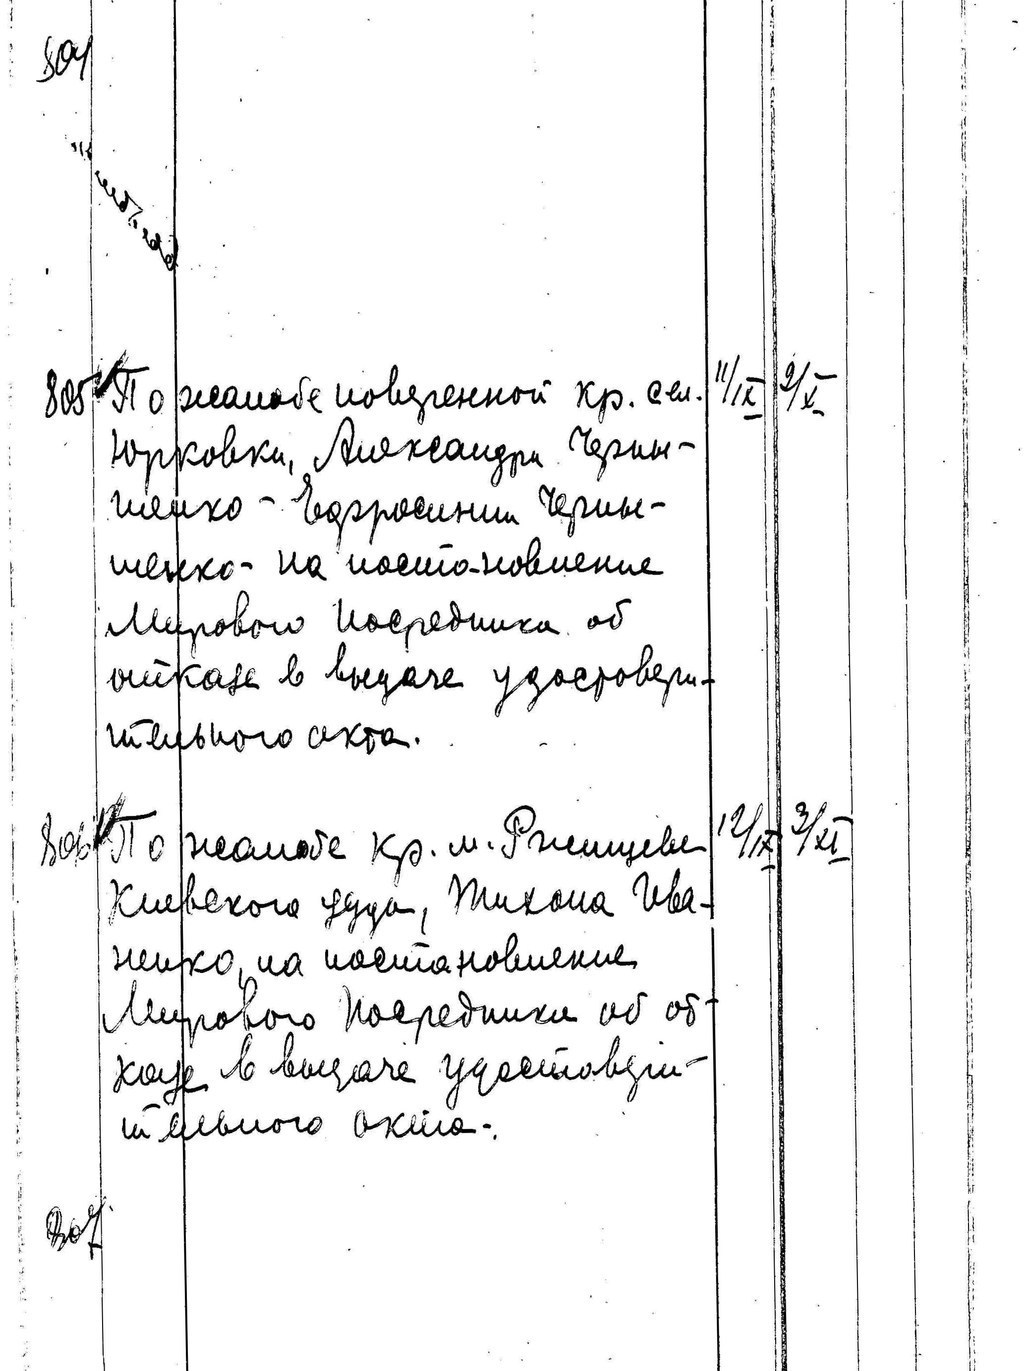 804
805 По жалобе поверенной кр. сел. 11/IX 2/X
Юрковки, Александры Черны-
шенко - Ефросинии Черны-
шенко - на постановление
Мирового Посредника об
отказе в выдаче удостовери-
тельного акта.
806 По жалобе кр. м. Ржищева 12/IX 3/XI
Киевского уезда, Тихона Ива-
ненко, на постановление
Мирового Посредника об от-
казе в выдаче удостовери-
тельного акта.
807